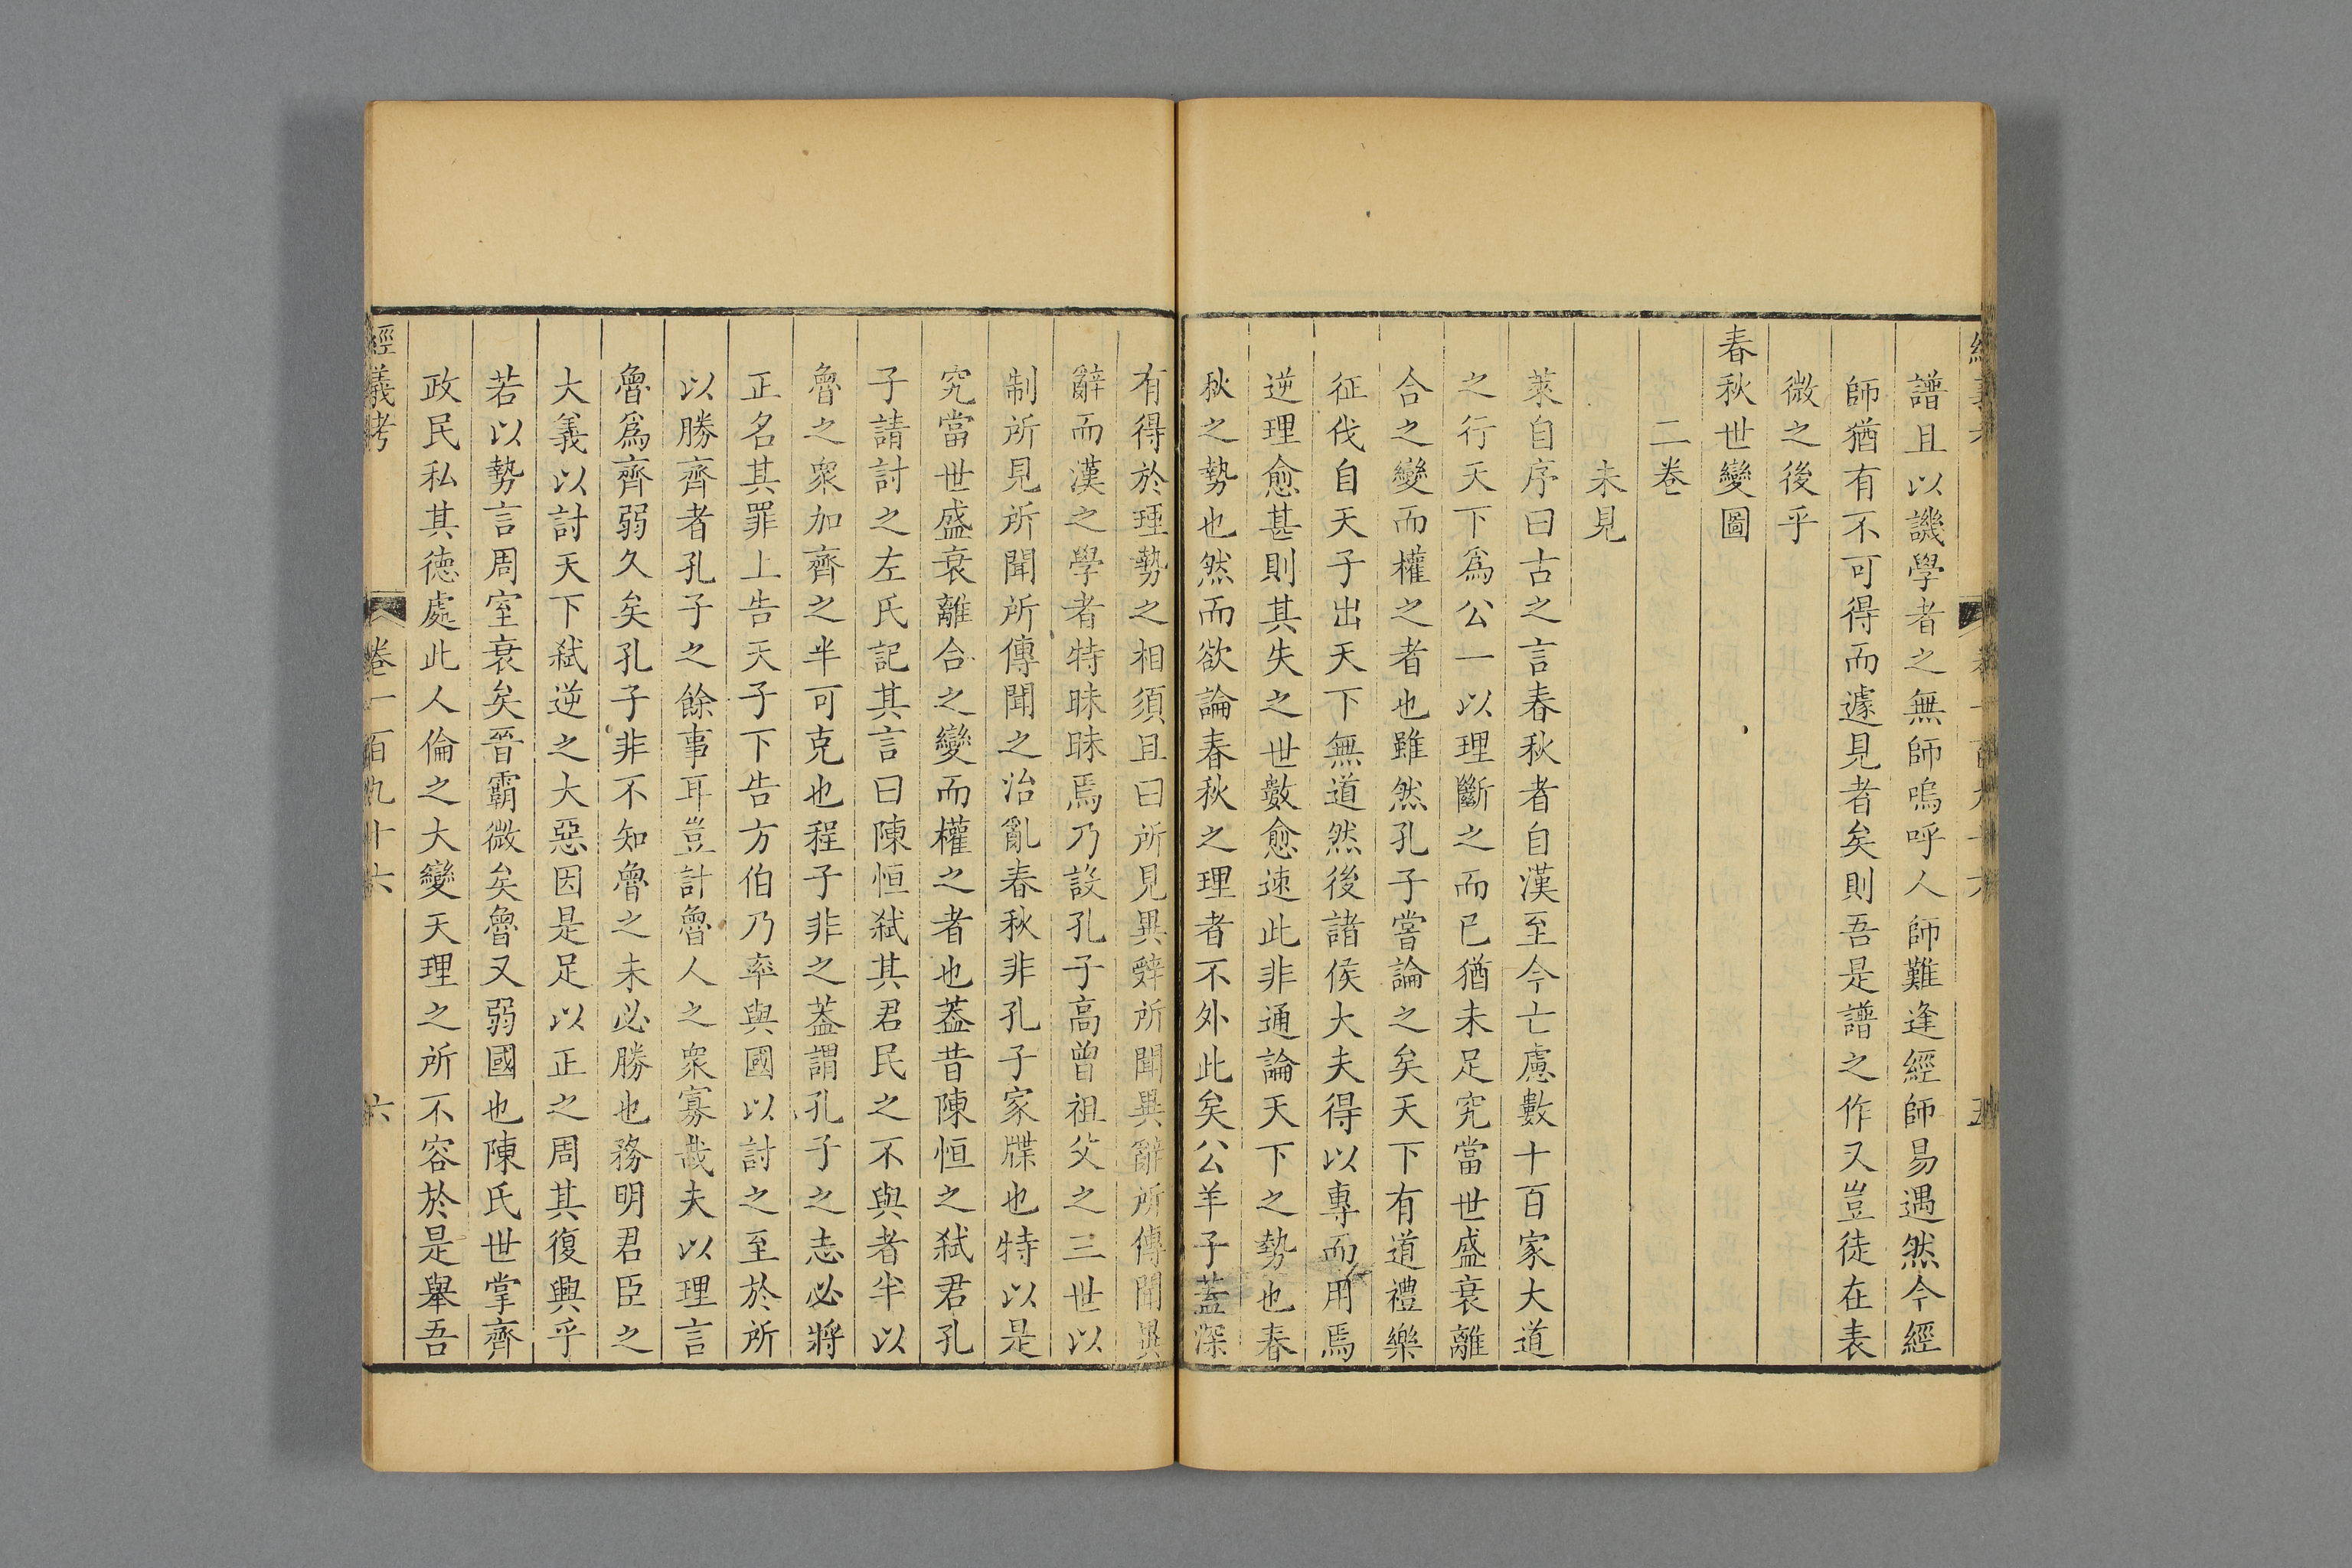 譜且以譏學者之無師嗚呼人師難逢經師易遇然今經
師猶有不可得而遽見者矣則吾是譜之作又豈徒在表
微之後乎
春秋世變圖
二卷
未見
萊自序曰古之言春秋者自漢至今亡慮數十百家大道
之行天下爲公一以理斷之而已猶未足究當世盛衰離
合之變而權之者也雖然孔子嘗論之矣天下有道禮樂
征伐自天子出天下無道然後諸侯大夫得以專而用焉
逆理愈甚則其失之世數愈速此非通論天下之勢也春
秋之勢也然而欲論春秋之理者不外此矣公羊子蓋深
有得於理勢之相須且曰所見異辭所聞異辭所傳聞異
辭而漢之學者特昧昧焉乃設孔子高曾祖父之三世以
制所見所聞所傳聞之治亂春秋非孔子家牒也特以是
究當世盛衰離合之變而權之者也蓋昔陳恒之弑君孔
子請討之左氏記其言曰陳恒弑其君民之不與者半以
魯之衆加齊之半可克也程子非之蓋謂孔子之志必將
正名其罪上告天子下告方伯乃率與國以討之至於所
以勝齊者孔子之餘事耳豈計魯人之衆寡哉夫以理言
魯爲齊弱久矣孔子非不知魯之未必勝也務明君臣之
大義以討天下弑逆之大惡因是足以正之周其復興乎
若以勢言周室衰矣晉霸微矣魯又弱國也陳氏世掌齊
政民私其德處此人倫之大變天理之所不容於是舉吾
經義考 卷一百九十六 六